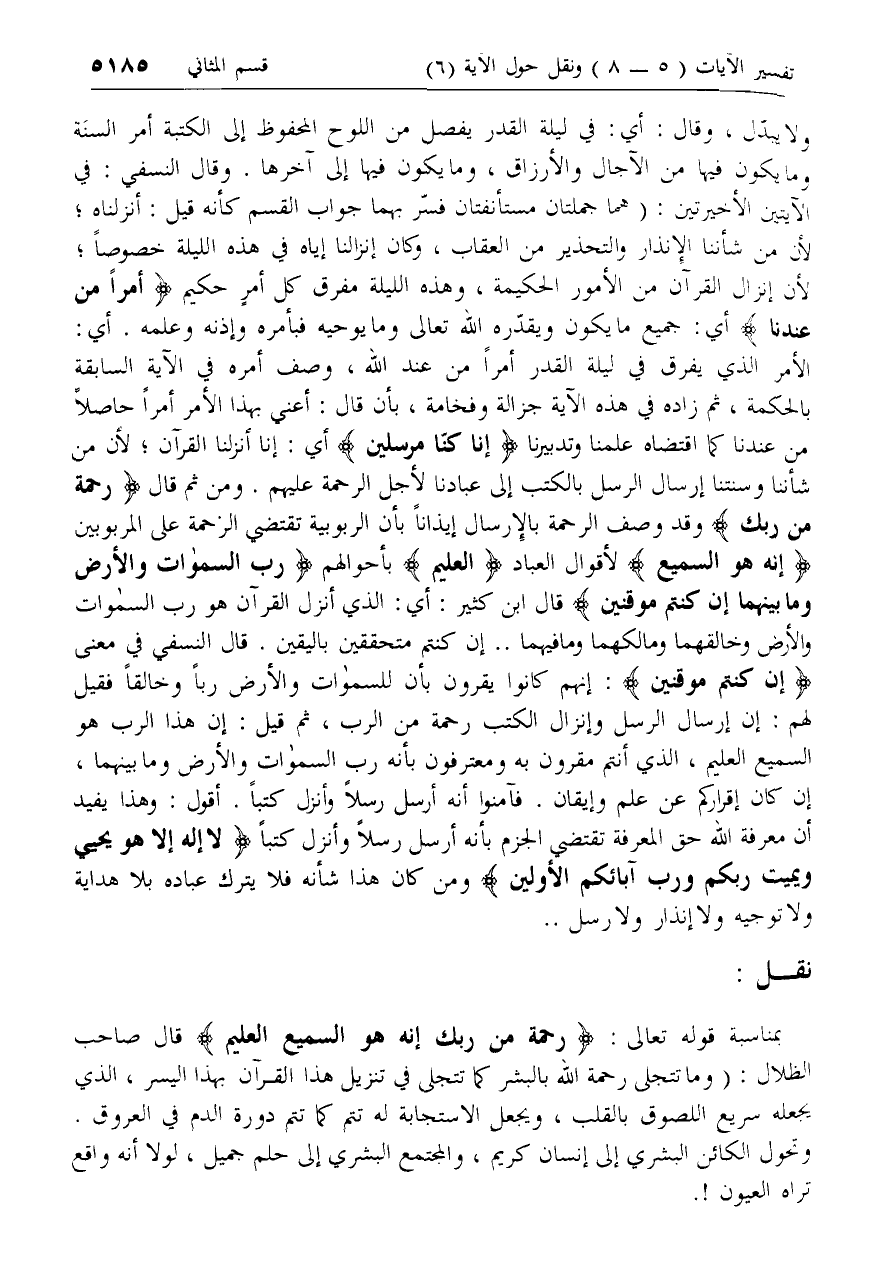 تفسير الآيات ( ٥ ــ ٨ ) ونقل حول الآية (٦) قسم المثاني ٥١٨٥
ولا يبدّل ، وقال : أي : في ليلة القدر يفصل من اللوح المحفوظ إلى الكتبة أمر السنَة
وما يكون فيها من الآجال والأرزاق ، وما يكون فيها إلى آخرها . وقال النسفي : في
الآيتين الأخيرتين : ( هما جملتان مستأنفتان فسّر بهما جواب القسم كأنه قيل : أنزلناه ؛
لأن من شأننا الإنذار والتحذير من العقاب ، وكان إنزالنا إياه في هذه الليلة خصوصاً ؛
لأن إنزال القرآن من الأمور الحكيمة ، وهذه الليلة مفرق كل أمرٍ حكيم ﴿ أمراً من
عندنا ﴾ أي : جميع ما يكون ويقدّره الله تعالى وما يوحيه فبأمره وإذنه وعلمه . أي :
الأمر الذي يفرق في ليلة القدر أمراً من عند الله ، وصف أمره في الآية السابقة
بالحكمة ، ثم زاده في هذه الآية جزالة وفخامة ، بأن قال : أعني بهذا الأمر أمراً حاصلاً
من عندنا كما اقتضاه علمنا وتدبيرنا ﴿ إنا كنّا مرسلين ﴾ أي : إنا أنزلنا القرآن ؛ لأن من
شأننا وسنتنا إرسال الرسل بالكتب إلى عبادنا لأجل الرحمة عليهم . ومن ثم قال ﴿ رحمة
من ربك ﴾ وقد وصف الرحمة بالإرسال إيذاناً بأن الربوبية تقتضي الرحمة على المربوبين
﴿ إنه هو السميع ﴾ لأقوال العباد ﴿ العليم ﴾ بأحوالهم ﴿ رب السمٰوات والأرض
وما بينهما إن كنتم موقنين ﴾ قال ابن كثير : أي : الذي أنزل القرآن هو رب السمٰوات
والأرض وخالقهما ومالكهما ومافيهما .. إن كنتم متحققين باليقين . قال النسفي في معنى
﴿ إن كنتم موقنين ﴾ : إنهم كانوا يقرون بأن للسمٰوات والأرض رباً وخالقاً فقيل
لهم : إن إرسال الرسل وإنزال الكتب رحمة من الرب ، ثم قيل : إن هذا الرب هو
السميع العليم ، الذي أنتم مقرون به ومعترفون بأنه رب السمٰوات والأرض وما بينهما ،
إن كان إقراركم عن علم وإيقان . فآمنوا أنه أرسل رسلاً وأنزل كتباً . أقول : وهذا يفيد
أن معرفة الله حق المعرفة تقتضي الجزم بأنه أرسل رسلاً وأنزل كتباً ﴿ لا إله إلا هو يحيي
ويميت ربكم ورب آبائكم الأولين ﴾ ومن كان هذا شأنه فلا يترك عباده بلا هداية
ولا توجيه ولا إنذار ولا رسل ..
نقـــل :
بمناسبة قوله تعالى : ﴿ رحمة من ربك إنه هو السميع العليم ﴾ قال صاحب
الظلال : ( وما تتجلى رحمة الله بالبشر كما تتجلى في تنزيل هذا القـرآن بهذا اليسر ، الذي
يجعله سريع اللصوق بالقلب ، ويجعل الاستجابة له تتم كما تتم دورة الدم في العروق .
وتحول الكائن البشري إلى إنسان كريم ، والمجتمع البشري إلى حلم جميل ، لولا أنه واقع
تراه العيون !.